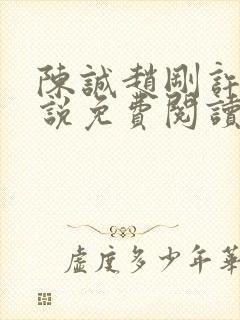 陳誠趙剛許
說免費閱讀
虛度多少年華